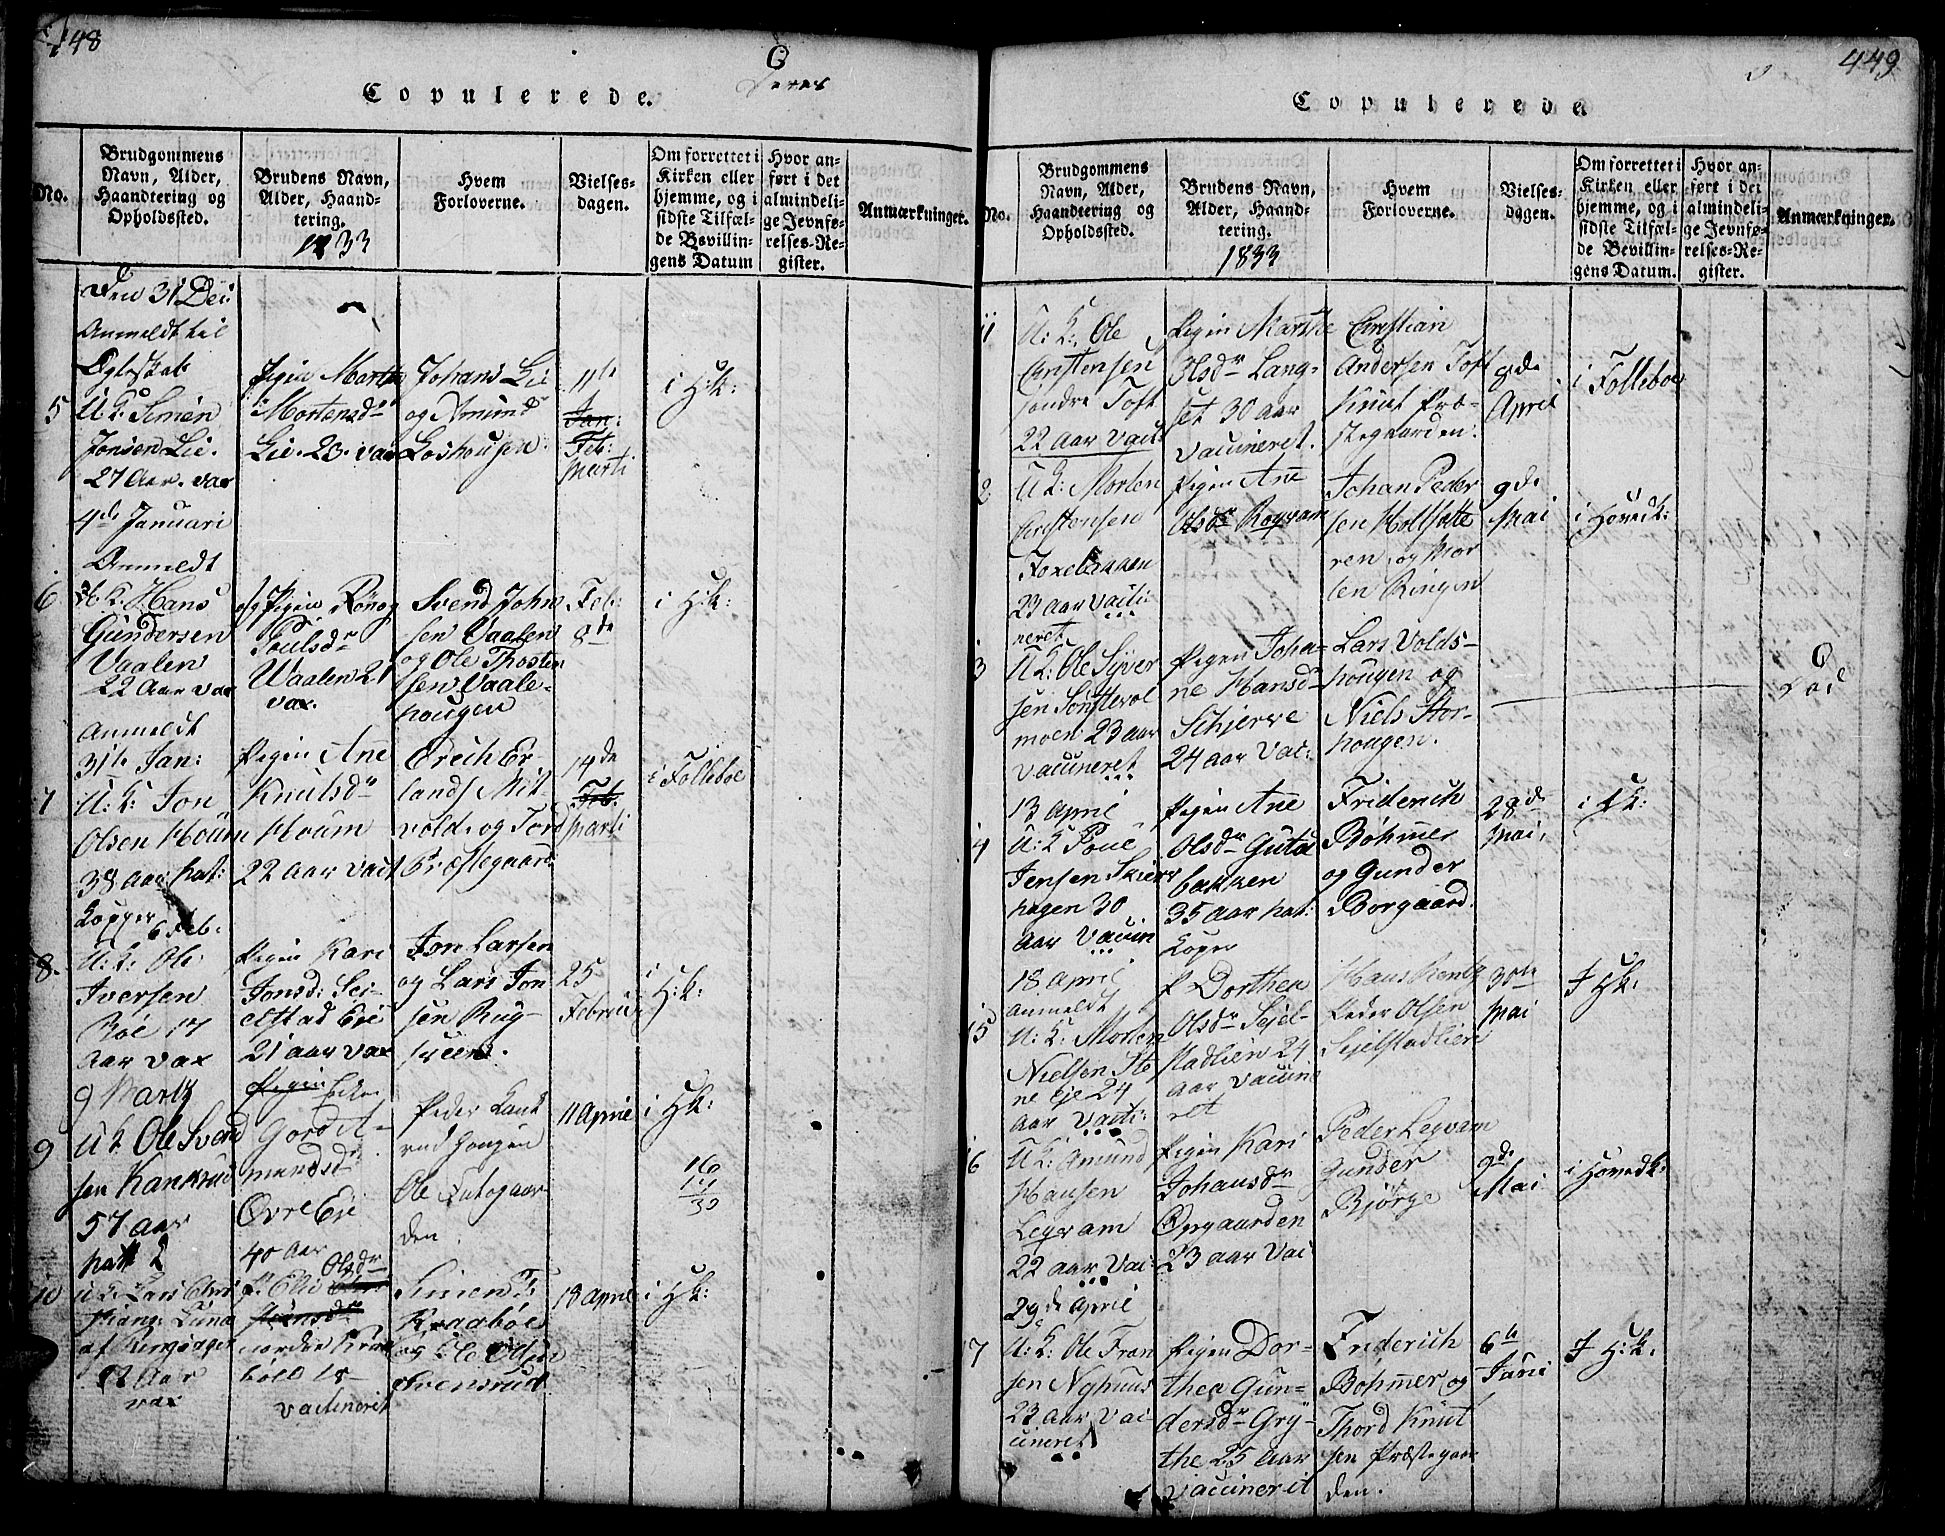 448
Copulerede.
No.
Brudgommens
Navn, Alder,
Haandtering og
Opholdssted.
Brudens Navn,
Alder, Haand-
tering.
1833
Hvem
Forloverne.
Vielses-
dagen.
Om forrettet i
Kirken eller
hjemme, og i
sidste Tilfæl-
de Bevillin-
gens Datum
Hvor an-
ført i det
almindeli-
ge Jevnfø-
relses-Re-
gister.
Anmærkninger.
Den 31 Dec
Anmeldt til
Egteskab
5
U: K: Simen
Jonsen Lie.
27 Aar. vax
Pigen Marthe
Mortensdr
Lie. 23. vax
Johans Lie
og Amund
Loshougen
11te
Jan:
Feb:
Marti
i H:k:
4de Januari
Anmeldt
6
U: K. Hans
Gundersen
Vaalen
22 Aar vax
og Pigen Rønog
Poulsdr
Waalen 21
vax.
Svend John
sen Vaalen
og Ole Thosten
sen Vaale-
hougen
Feb:
8de
i H:k:
Anmeldt
31te Jan:
7
U: K: Jon
Olsen Houm
38 Aar hat:
Kopper
Pigen Ane
Knutsdr
Houm
22 Aar vact
Erich Er-
lands Mit
vold. og Tord
Præstegaard
14de
Feb:
Marti
i Folleboe
6 Feb:
8.
U: K: Ole
Iversen
Roe 17
Aar vax
Pigen Kari
Jonsd: Sei-
elstad Eje
21 aar vax
Jon Larsen
og Lars Jon
sen Rug-
sveen.
25
Februar
i
H:k:
9 Martz
9
U K Ole Svend
sen Kankrud
57 aar
hatt 2
Pigen
Gord A-
mundsd
Øvre Eje
40 Aar
Peder Kank
rud hougen
Ole Lutogaar
den.
11 April
i Hk:
16
14
30
10
U: K: Lars Chri
stians: Luna
af Ringager
22 Aar
vax
P. Eli
Olsdr
nordre Kraa
böle 18
vactineret
Simen T:
Kraabøe
og Ole Olsen
Svensrud
18 April
i Hk:
449
Copulerede
No.
Brudgommens
Navn, Alder,
Haandtering og
Opholdssted.
Brudens Navn,
Alder, Haand-
tering.
1833
Hvem
Forloverne.
Vielses-
dagen.
Om forrettet i
Kirken eller
hjemme, og i
sidste Tilfæl-
de Bevillin-
gens Datum.
Hvor an-
ført i det
almindeli-
ge Jevnfø-
relses-Re-
gister.
Anmærkninger.
11
U: K: Ole
Christensen
søndre Toft
22 Aar Vact
Pigen Marthe
Olsdr Lang-
set 30 aar
vacuineret.
Christian
Andersen Toft
Knut Præ-
stegaarden.
8de
April
i Folleboe
2
U K: Morten
Christensen
Foxebakken
23 aar Vacti:
neret
Pigen Ane
Olsdr Rogvam
Johan Peder
sen Holtsætte
ren, og Mor
ten Ringen
9de
Mai
i Hovedk:
3
U: K: Ole Syver
sen Sønstevol
moen 23 aar
Vacuineret
Pigen Joha-
ne Hansdr
Schjerve
24 aar Vac:
Lars Volds-
hougen og
Niels Stor-
hougen.
13 April
4
U: K Poul
Jensen Skier
hagen 30
Aar Vacuin
Pigen Ane
Olsdr Guta
bakken
35 aar hat:
Koper
Friderich
Bøhmer
og Gunder
Borgaard.
28de
Mai,
i Hk:
18 April
Anmeldt
15
U: K: Morten
Nielsen Ste
ne Eje 24
Aar Vacti:
P Dorthea
Olsdr Sejel-
stadlien 24
Aar vacuine
ret
Peder Olsen
Sejelstadlien
30te
Mai
I Hk:
16
U K: Amund
Hansen
Legvam
22 aar Vac:
Pigen Kari
Johansdr
Opgaarden
23 aar Vac
Peder Legvam
Gunder
Bjørge
9de
Mai
i Hovedk:
29de April
17
U: K: Ole Fran
sen Nyhuus
23 aar Vac
cineret
Pigen Dor-
thea Gun-
dersdr Gry-
the 25 aar
Vacuinerit
Friderich
Bøhmer og
Thord Knut
sen Præstegaar
den.
6te
Juni
I H:k.